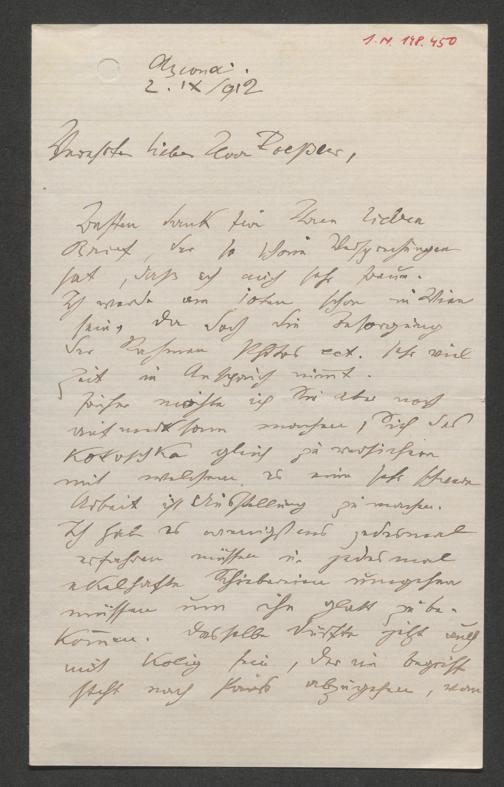 I.N. 198.450
Ascona.
2. IX/912
Verehrter lieber Herr Roessler,
Besten Dank für Ihren lieben
Brief, der so schöne Versprechungen
hat, daß ich mich sehr freue.
Ich werde am 10ten schon in Wien
sein, da doch die Besorgung
der Rahmen Photos ect. sehr viel
Zeit in Anspruch nimmt.
Früher möchte ich Sie aber noch
aufmerksam machen, sich des
Kokoschka gleich zu versichern
mit welchem es eine sehr schwere
Arbeit ist Ausstellung zu machen.
Ich hab es wenigstens jedesmal
erfahren müssen u. jedesmal
ekelhafte Schiebereien umgehen
müssen um ihn glatt zu be-
kommen. Dasselbe dürfte jetzt auch
mit Kolig sein, der im Begriff
steht nach Paris abzugehen, von